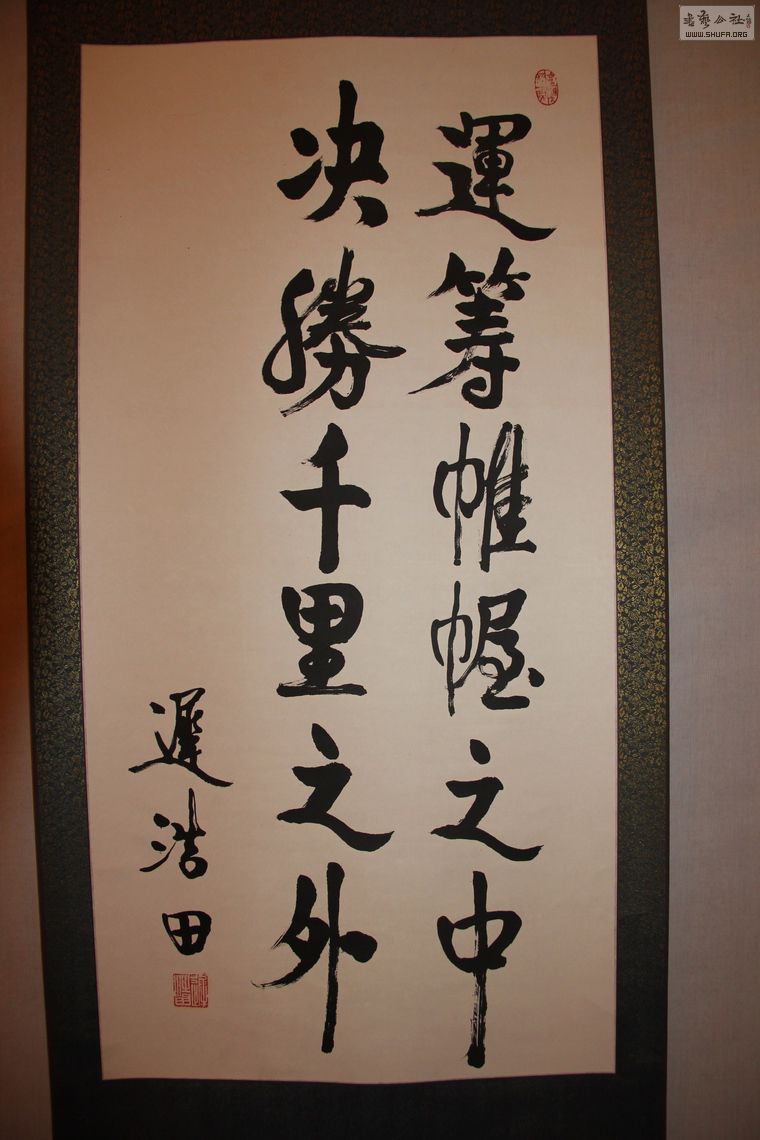 運筹帷幄之中
决勝千里之外
遲浩田
書藝公社
WWW.SHUFA.ORG